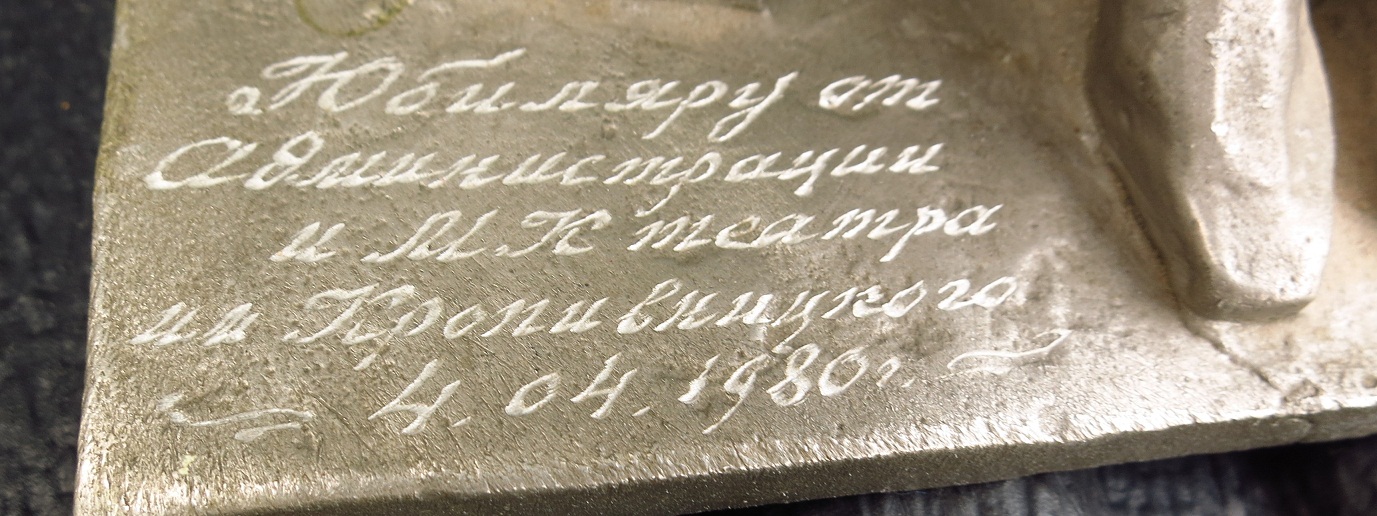 Юбиляру от
Администрации
и М.К театра
им Кропивницкого
4. 04. 1980г.